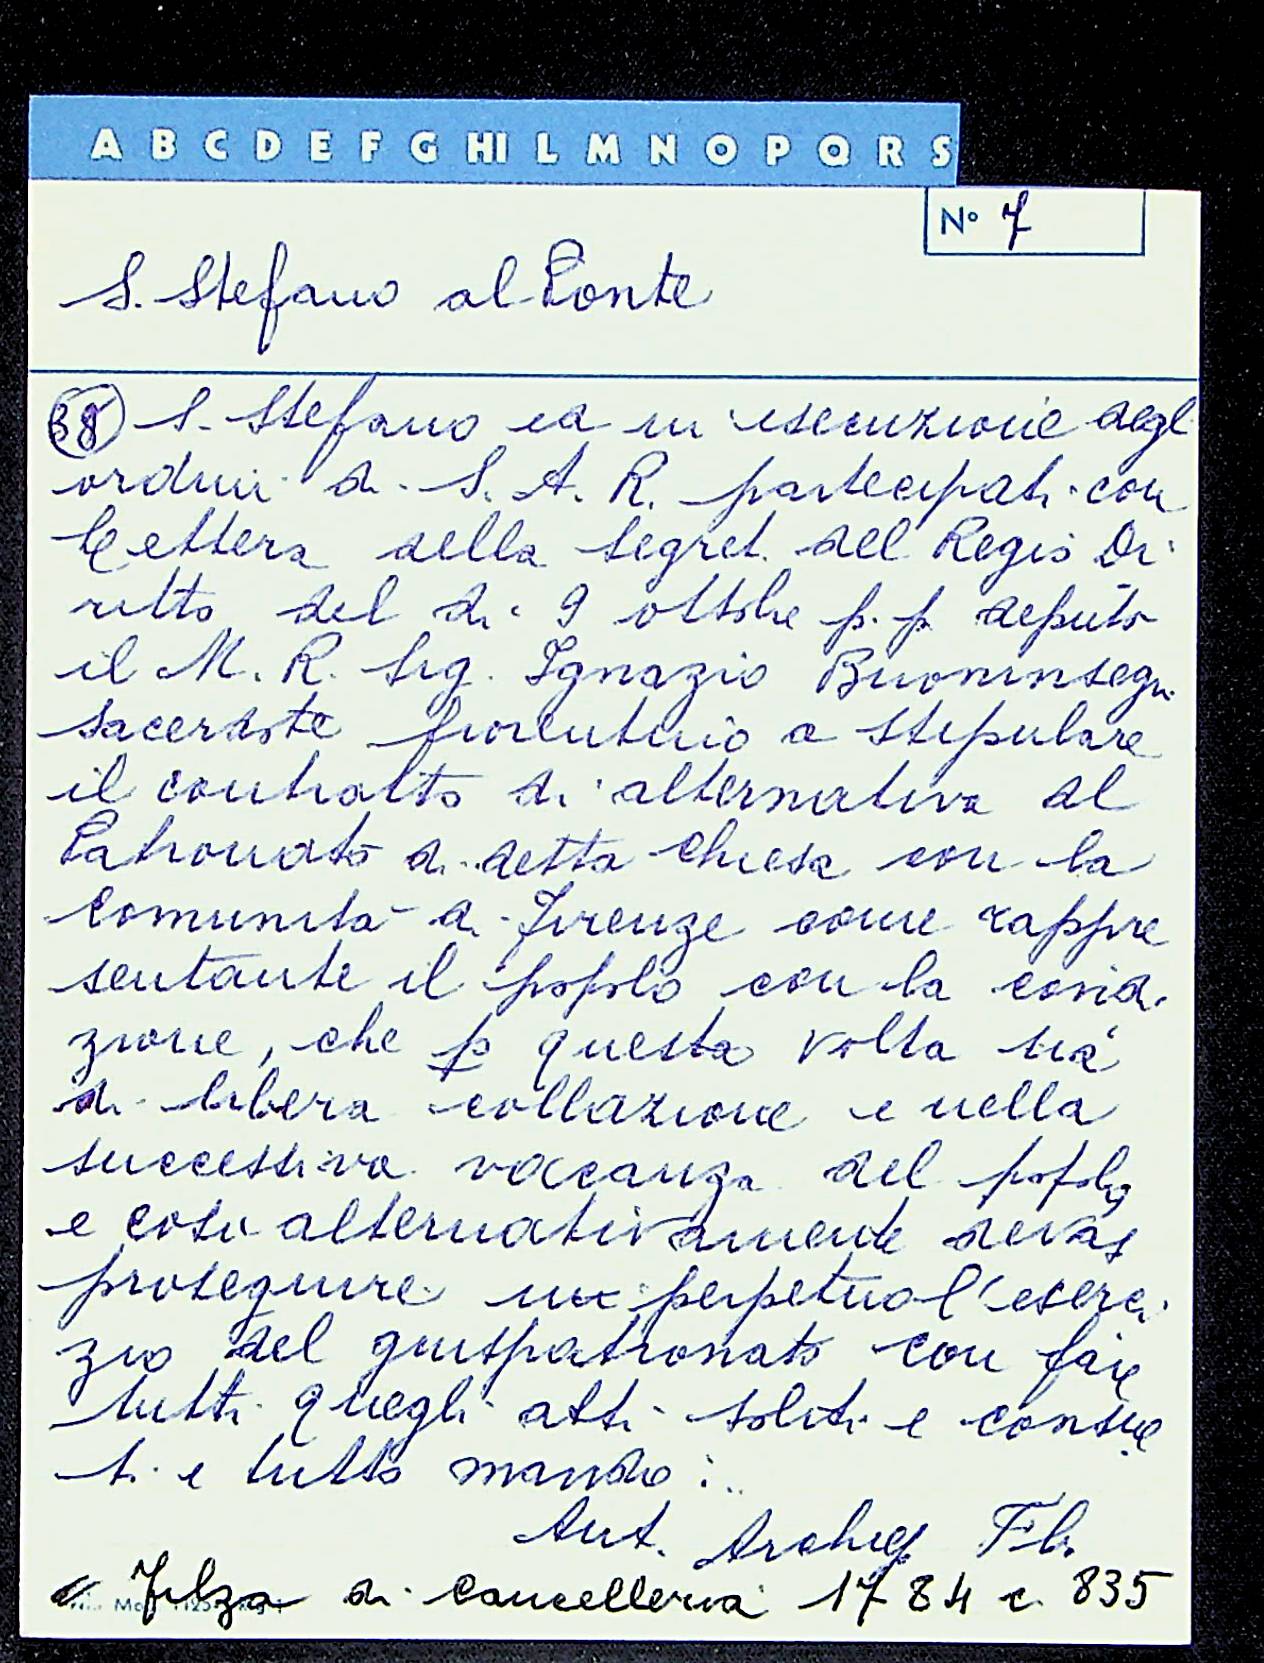 A B C D E F G HI L M N O P Q R S
N° 7
S. Stefano al Ponte
38 S. Stefano ed in esecuzione degl
ordini di S. A. R. partecipati con
Lettera della Segret. del Regio Di
ritto del di 9 ottobre p. p. deputò
il M. R. Sig. Ignazio Buoninsegn.
sacerdote fiorentino a stipulare
il contratto di alternativa al
Patronato di detta Chiesa con la
Comunità di Firenze come rappre
sentante il popolo con la condi
zione, che p questa volta sia
di libera collazione e nella
successiva vacanza del popolo,
e così alternativamente devas
proseguire in perpetuo l'eserci
zio del giuspatronato con fare
tutti quegli atti soliti e consue
ti e tutto mando:..
Ant. Archiep. Flo.
Filza di Cancelleria 1784 c. 835